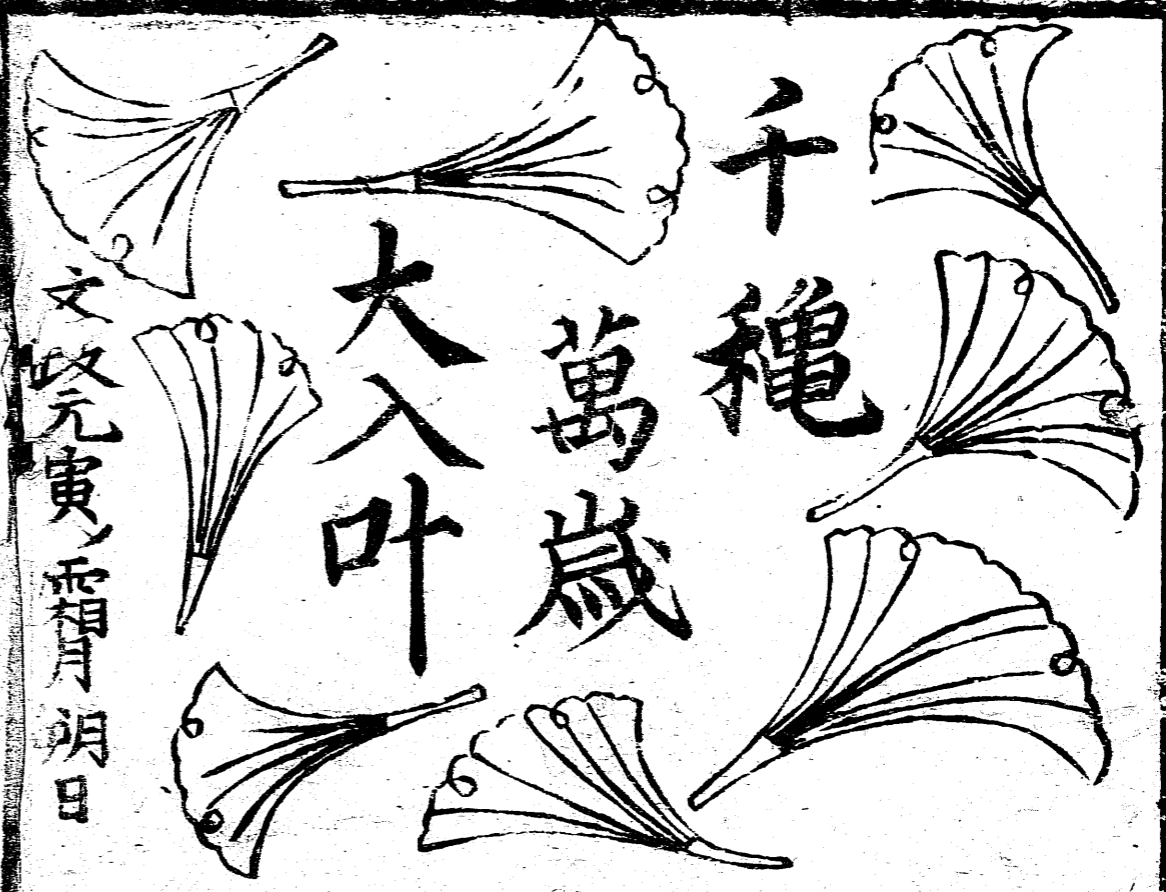 千穐
萬歳
大入叶
文政元寅霜月朔日